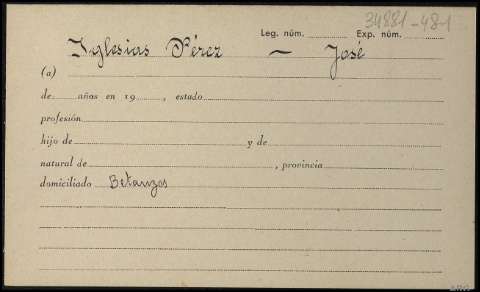 34881-481
Leg. núm. Exp. núm.
Iglesias Pérez — José
(a)
de años en 19 , estado
profesión
hijo de y de
natural de , provincia
domiciliado Betanzos